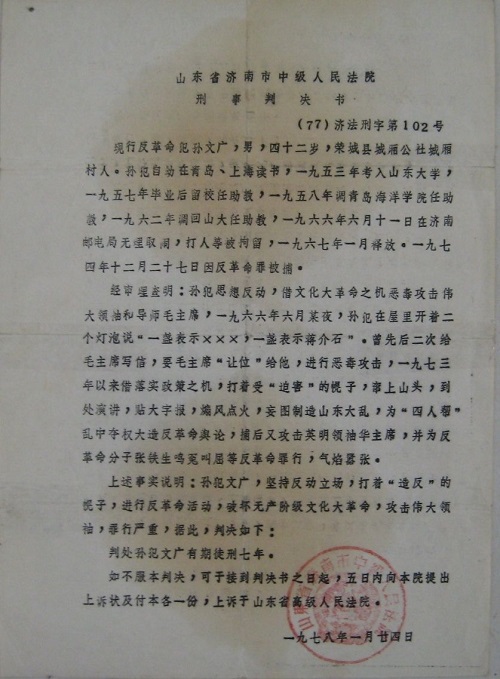 山东省济南市中级人民法院
刑事判决书
(77)济法刑字第102号
现行反革命犯孙文广，男，四十二岁，荣城县城厢公社城厢
村人。孙犯自幼在青岛、上海读书，一九五三年考入山东大学，
一九五七年毕业后留校任助教，一九五八年调青岛海洋学院任助
教，一九六二年调回山大任助教，一九六六年六月十一日在济南
邮电局无理取闹，打人等被拘留，一九六七年一月释放。一九七
四年十二月二十七日因反革命罪被捕。
经审理查明：孙犯思想反动，借文化大革命之机恶毒攻击伟
大领袖和导师毛主席，一九六六年六月某夜，孙犯在屋里开着二
个灯泡说“一盏表示×××，一盏表示蒋介石”。曾先后二次给
毛主席写信，要毛主席“让位”给他，进行恶毒攻击，一九七三
年以来借落实政策之机，打着受“迫害”的幌子，串上山头，到
处演讲，贴大字报，煽风点火，妄图制造山东大乱，为“四人帮”
乱中夺权大造反革命舆论，捕后又攻击英明领袖华主席，并为反
革命分子张铁生鸣冤叫屈等反革命罪行，气焰嚣张。
上述事实说明：孙犯文广，坚持反动立场，打着“造反”的
幌子，进行反革命活动，破坏无产阶级文化大革命，攻击伟大领
袖，罪行严重，据此，判决如下：
判处孙犯文广有期徒刑七年。
如不服本判决，可于接到判决书之日起，五日内向本院提出
上诉状及付本各一份，上诉于山东省高级人民法院。
山东省济南市中级人民法院
一九七八年一月廿四日